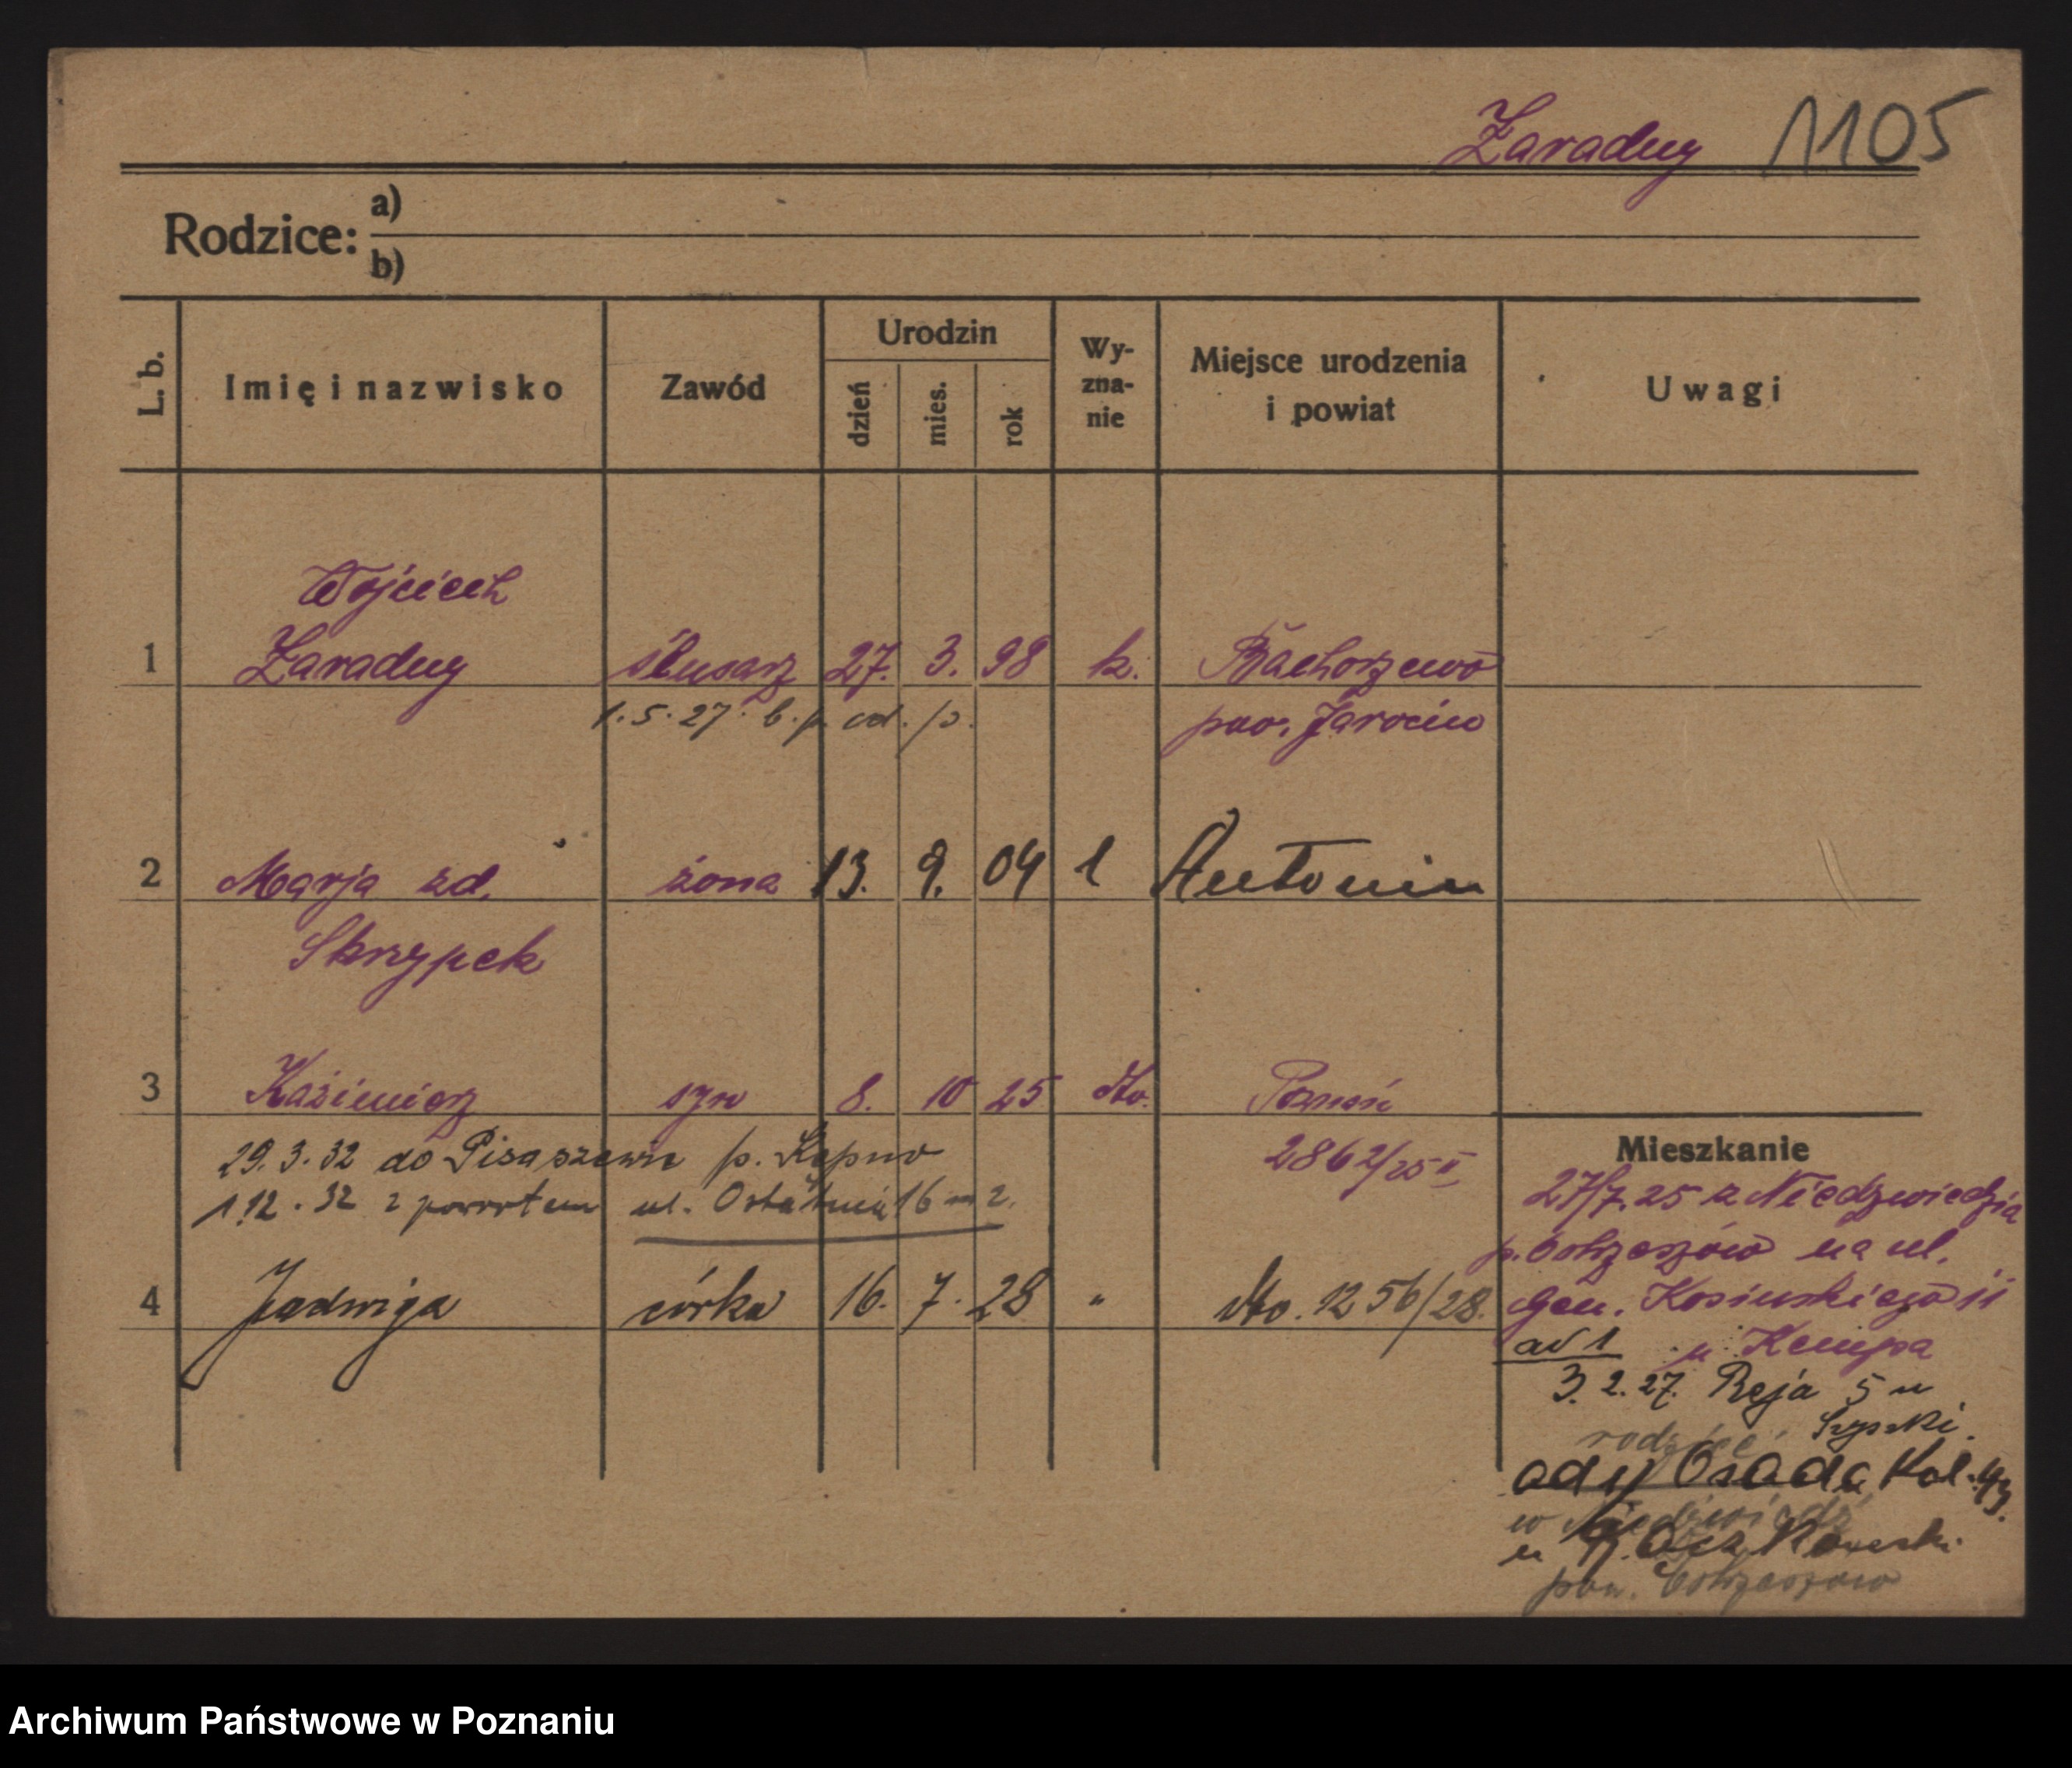 Zaradny 1105
Rodzice: a)
b)
L. b. Imię i nazwisko Zawód Urodzin dzień mies. rok Wy-zna-nie Miejsce urodzenia i powiat Uwagi
Wojciech
1 Zaradny ślusarz 27. 3. 98 k. Bachorzewo
1.5.27. b. p. od. p. pow. Jarocin
2 Marja zd. żona 13. 9. 04 Antonin
Skrzypek
3 Kazimierz syn 8. 10 25 dto. Poznań
2862/25 II
29.3.32 do p. Kępno
1.12.32 z powrotem ul. Ostatnia 16 m 2.
4 Jadwiga córka 16. 7. 28 " dto. 1256/28.
Mieszkanie
27/7.25 z Niedzwiedzia
p. Ostrzeszów na ul.
Gen. Kosinskiego 11
ad 1 u Kempa
3.2.27. Reja 5 u
rodzice
Osada Kol. 43.
w Niedzwiedz
u
pow. Ostrzeszów
Archiwum Państwowe w Poznaniu